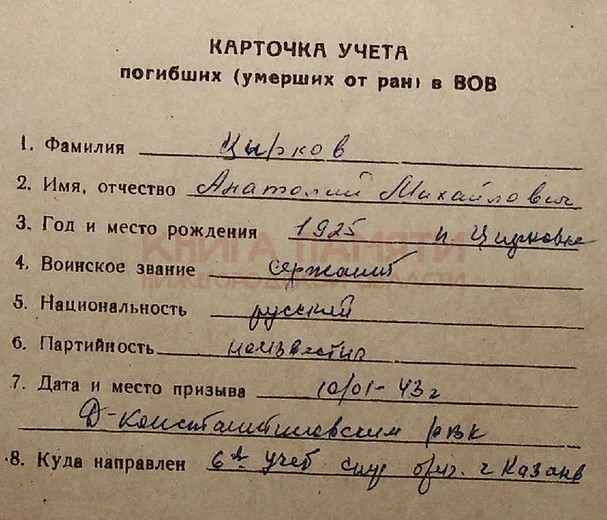 КАРТОЧКА УЧЕТА
погибших (умерших от ран) в ВОВ
1. Фамилия Цирков
2. Имя, отчество Анатолий Михайлович
3. Год и место рождения 1925 п. Цирковы
КНИГА ПАМЯТИ
4. Воинское звание сержант
НИЖЕГОРОДСКОЙ ОБЛАСТИ
5. Национальность русский
6. Партийность неизвестна
7. Дата и место призыва 10/01-43г
Д-Константиновским рвк
8. Куда направлен 6й учеб г Казань